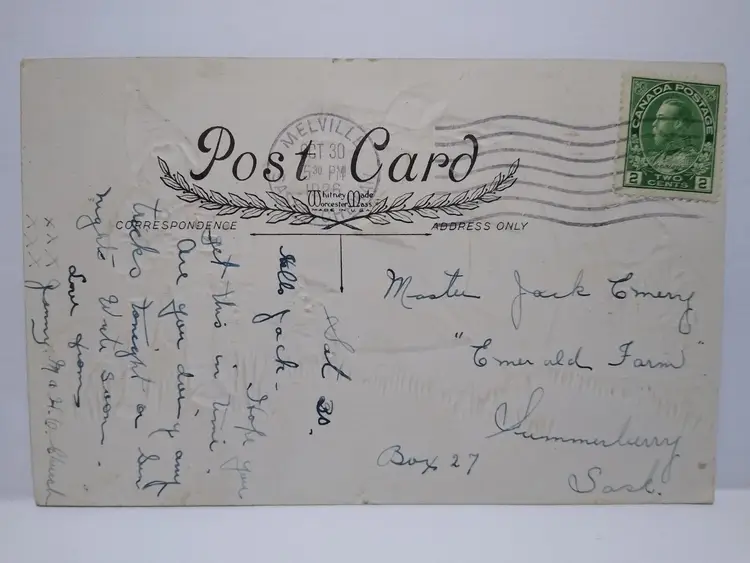 CANADA POSTAGE
2 TWO CENTS 2
MELVILLE
OCT 30
5 30 PM
1926
Post Card
Whitney Made
Worcester Mass
MADE IN U.S.A.
CORRESPONDENCE
ADDRESS ONLY
Sat 30.
Hello Jack -
Hope you
get this in time.
Are you doing any
tricks tonight or Sun
night. Write soon.
Love from
xxx
xxx
Master Jack Emery
"Emerald Farm"
Summerberry
Sask.
Box 27